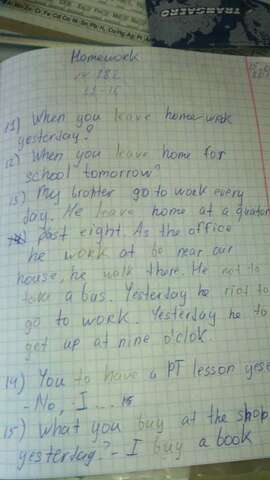 TRANSAERO
Homework
11) When you leave home work
yesterday?
12) When you leave home for
school tomorrow?
13) My brother go to work every
day. He leave home at a quater
past eight. As the office
he work at be near our
house, he walk there. He not to
take a bus. Yesterday he not to
go to work. Yesterday he to
get up at nine o'clok.
14) You to have a PT lesson yes
- No, I ...
15) What you buy at the shop
yesterday? - I buy a book